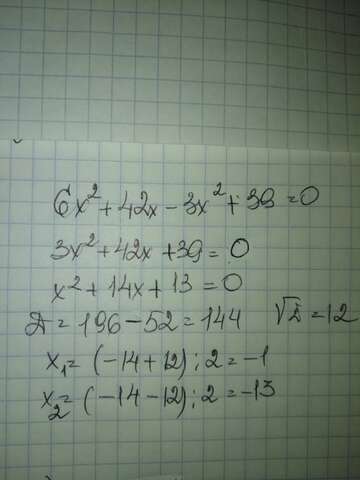 6x² + 42x - 3x² + 39 = 0
3x² + 42x + 39 = 0
x² + 14x + 13 = 0
Д = 196 - 52 = 144 √Д = 12
x₁ = (-14 + 12) : 2 = -1
x₂ = (-14 - 12) : 2 = -13